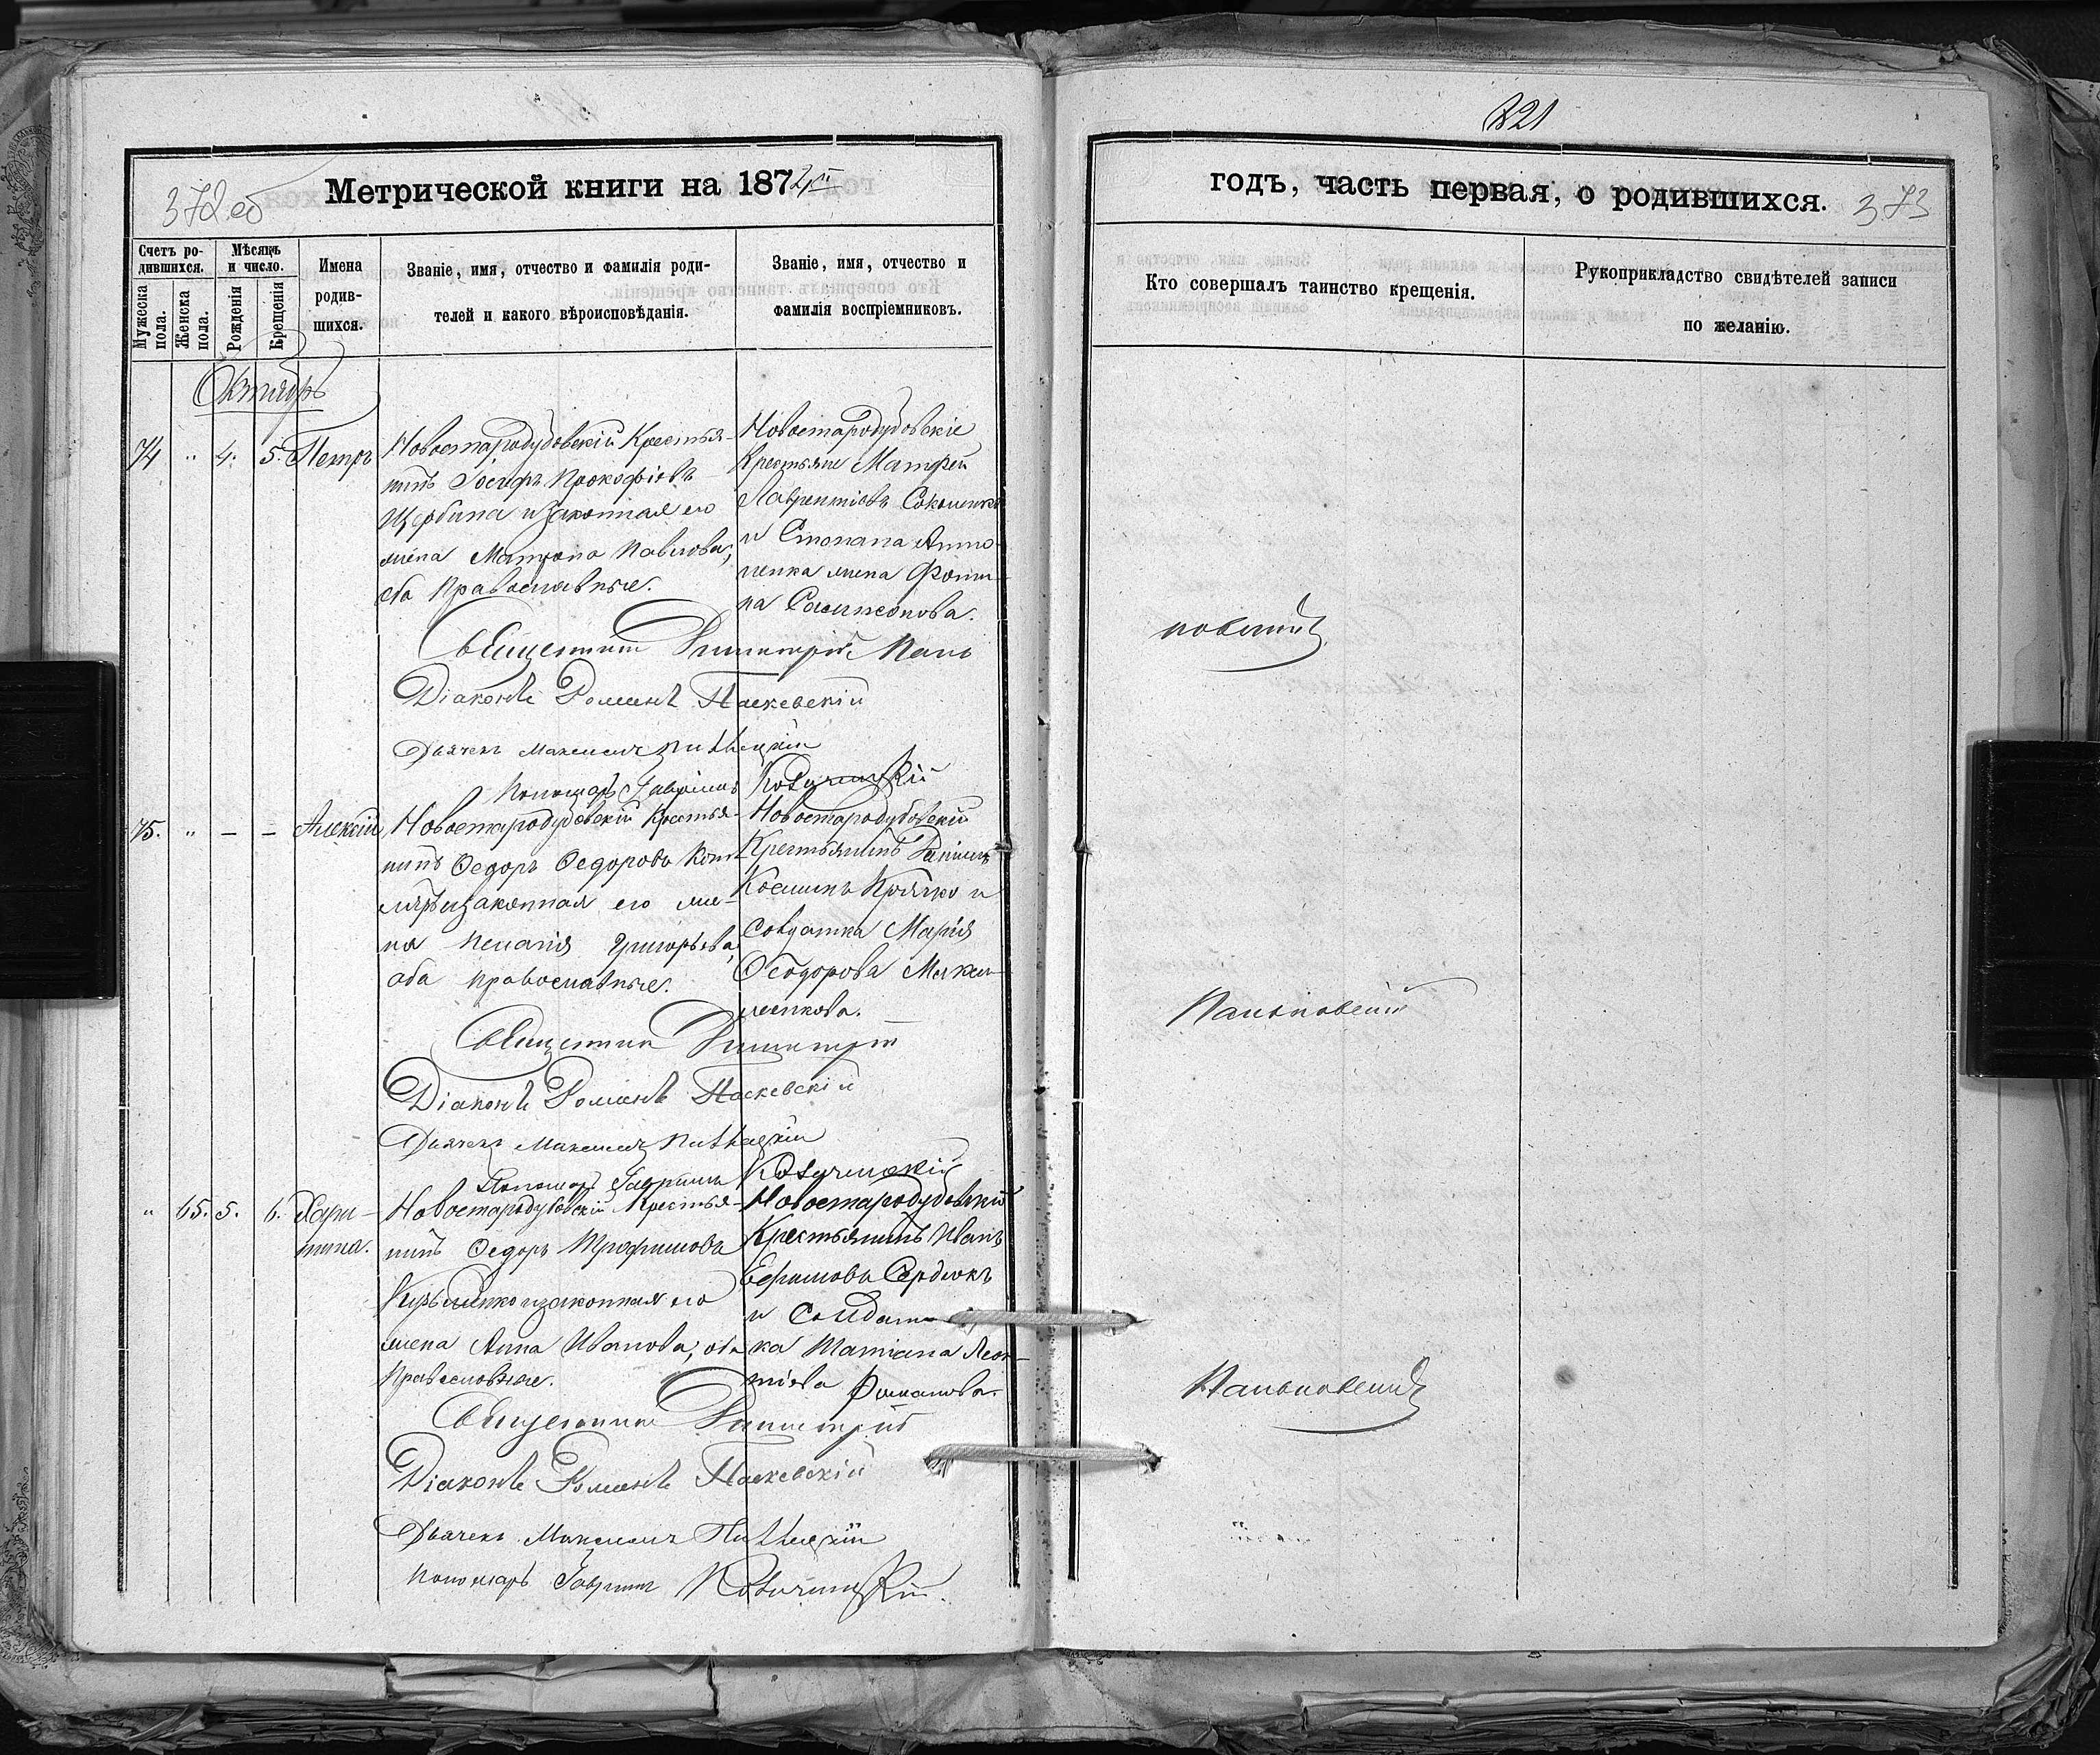 821
372об
Метрической книги на 1872й
годъ, часть первая, о родившихся.
373
Счетъ ро-
дившихся.
Мѣсяцъ
и число.
Мужеска
пола.
Женска
пола.
Рожденія
Крещенія
Имена
родив-
шихся.
Званіе, имя, отчество и фамилія роди-
телей и какого вѣроисповѣданія.
Званіе, имя, отчество и
фамилія воспріемниковъ.
Кто совершалъ таинство крещенія.
Рукоприкладство свидѣтелей записи
по желанію.
Октябрь
74 " 4. 5. Петръ
Новостародубовскій Крестья-
нинъ Іосифъ Прокофіевъ
Щербина и законная его
жена Матрона Павлова,
оба Православные.
Новостародубовскіе
Крестьяне Матфей
Лаврентіевъ
и Стефана Анто-
ненка жена Фоти-
на Сампсонова.
Священникъ Димитрій Пань
ковскій
Діаконъ Романъ Паскевскій
Дьячекъ Максимъ
Пономарь Гавріилъ
75. " – – Алексій
Новостародубовскій Крестья-
нинъ Федоръ Федоровъ
и законная его же-
на Пелагія Григорьева,
оба православные.
Новостародубовскій
Крестьянинъ Даніилъ
Косминъ Крячко и
Солдатка Марія
Феодорова
Священникъ Димитрій
Паньковскій
Діаконъ Романъ Паскевскій
Дьячекъ Максимъ
Пономарь Гавріилъ
" 65. 5. 6. Хари-
тина.
Новостародубовскій Крестья-
нинъ Федоръ Трофимовъ
и законная его
жена Анна Иванова, оба
Православные.
Новостародубовскій
Крестьянинъ Иванъ
Ефимовъ Сердюкъ
и Солдат-
ка Татіана Леон-
тіева Романова.
Священникъ Димитрій
Паньковскій
Діаконъ Романъ Паскевскій
Дьячекъ Максимъ
Пономарь Гавріилъ